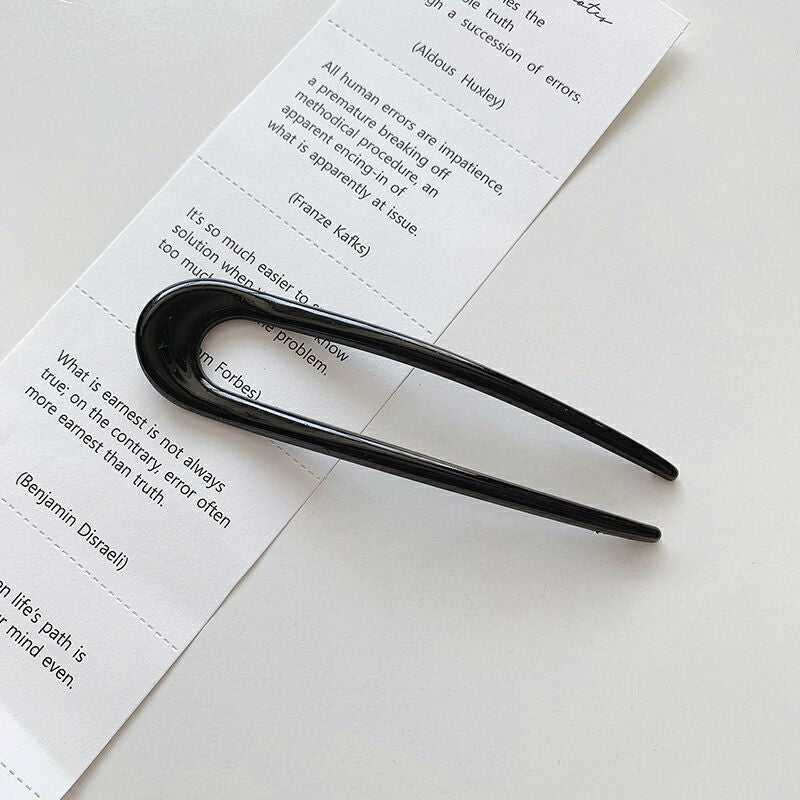 notes
es the
ble truth
gh a succession of errors.
(Aldous Huxley)
All human errors are impatience,
a premature breaking off
methodical procedure, an
apparent encing-in of
what is apparently at issue.
(Franze Kafks)
It's so much easier to s
solution when y know
too much he problem.
om Forbes)
What is earnest is not always
true; on the contrary, error often
more earnest than truth.
(Benjamin Disraeli)
on life's path is
ur mind even.